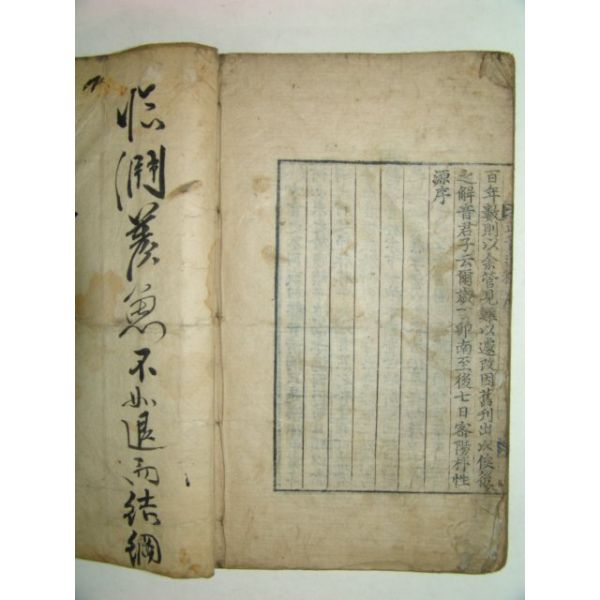 百年數則以余管見難以遽改因舊刊出以俟後
之解音君子云爾歲丁卯南至後七日密陽朴性
源序
臨淵羨魚不如退而結網